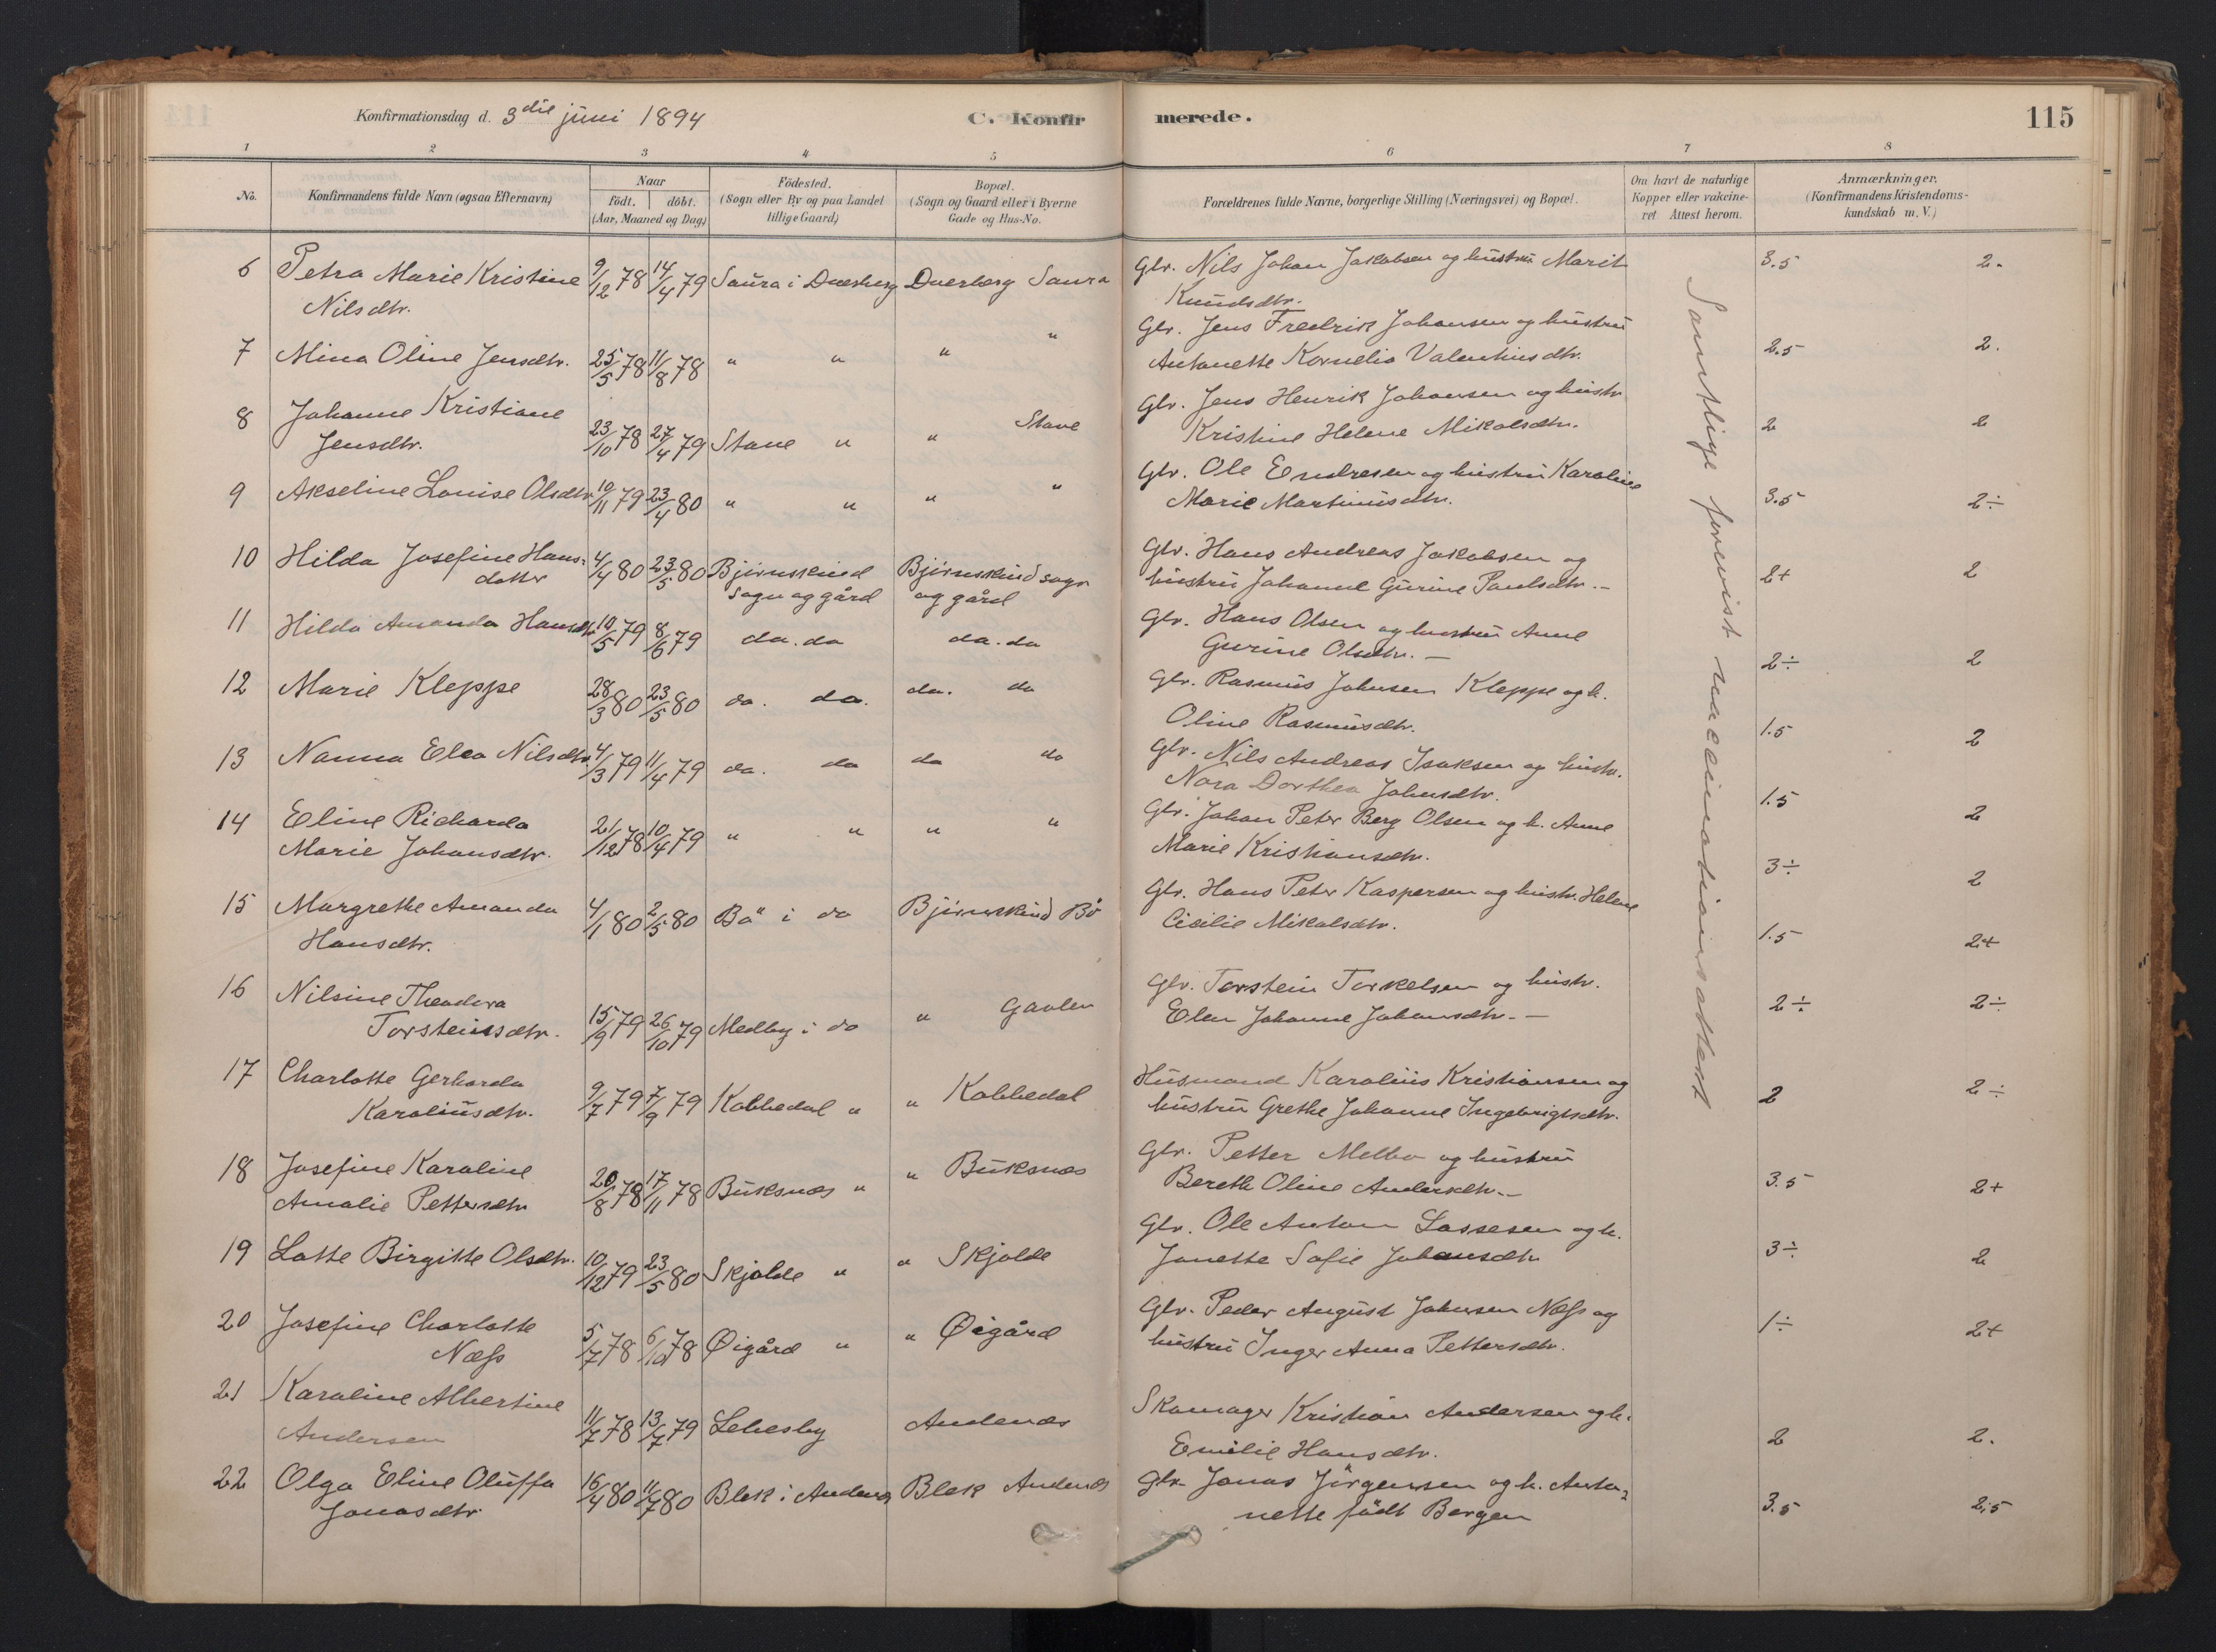 Konfirmationsdag d. 3die juni 1894 C. Konfirmerede. 115
1 2 3 4 5 6 7 8
No. Konfirmandens fulde Navn (ogsaa Efternavn) Naar födt. döbt. (Aar, Maaned og Dag) Födested. (Sogn eller By og paa Landet tillige Gaard) Bopæl. (Sogn og Gaard eller i Byerne Gade og Hus-No. Forældrenes fulde Navne, borgerlige Stilling (Næringsvei) og Bopæl. Om havt de naturlige Kopper eller vakcineret Attest herom. Anmærkninger. (Konfirmandens Kristendomskundskab m. V.)
Samtlige forevist vaccinationsattest
6 Petra Marie Kristine 9/12 78 14/4 79 Saura i Dverberg Dverberg Saura Glv. Nils Johan Jakobsen og hustru Marit 3.5 2.
Nilsdtr. Knudsdtr.
7 Mina Oline Jensdtr. 25/5 78 11/8 78 " " " " Glv. Jens Fredrik Johansen og hustru 2.5 2.
Antonette Kornelia Valentinsdtr.
8 Johanne Kristiane 23/10 78 27/4 79 Stave " " Stave Glv. Jens Henrik Johansen og hustr. 2 2
Jensdtr. Kristine Helene Mikalsdtr.
9 Akseline Louise Olsdtr. 10/11 79 23/4 80 " " " " Glv. Ole Endresen og hustru Karoline 3.5 2÷
Marie Martinusdtr.
10 Hilda Josefine Hans- 4/4 80 23/5 80 Bjørnskind Bjørnskind sogn Glv. Hans Andreas Jakobsen og 2+ 2
datter sogn og gård og gård hustru Johanne Gurine Paulsdtr. —
11 Hilda Amanda Hansdtr 10/5 79 8/6 79 do. do do. do Glv. Hans Olsen og hustru Anne 2÷ 2
Gurine Olsdtr. —
12 Marie Kleppe 28/3 80 23/5 80 do. do. do. do Glv. Rasmus Johnsen Kleppe og h. 1.5 2
Oline Rasmusdtr.
13 Nanna Elea Nilsdtr. 4/3 79 11/4 79 do. do do do Glv. Nils Andreas Isaksen og hustr. 1.5 2
Nora Dorthea Johnsdtr.
14 Eline Richarda 21/12 78 10/4 79 " " " " Glv. Johan Peter Berg Olsen og h. Anne 3÷ 2
Marie Johansdtr. Marie Kristiansdtr.
15 Margrethe Amanda 4/1 80 2/5 80 Bø i do Bjørnskind Bø Glv. Hans Peter Kaspersen og hustr. Helene 1.5 2+
Hansdtr. Cicilie Mikalsdtr.
16 Nilsine Theodora 15/9 79 26/10 79 Medby i do " Gavlen Glv. Torstein Torkelsen og hustr. 2÷ 2÷
Torsteinsdtr. Elen Johanne Johansdtr. —
17 Charlotte Gerharda 9/7 79 7/9 79 Kobbedal " " Kobbedal Husmand Karolius Kristiansen og 2 2÷
Karoliusdtr. hustru Grethe Johanne Ingebrigtsdtr.
18 Josefine Karoline 20/8 78 17/11 78 Buksnæs " " Buksnæs Glv. Petter Melbo og hustru 3.5 2+
Amalie Pettersdtr Bereth Oline Andersdtr. —
19 Lotte Birgitte Olsdtr. 10/12 79 23/5 80 Skjolde " " Skjolde Glv. Ole Anton Lassesen og h. 3÷ 2
Janette Sofie Johansdtr
20 Josefine Charlotte 5/7 78 6/10 78 Øigård " " Øigård Glv. Peder August Johnsen Næss og 1÷ 2+
Næss hustru Inger Anna Pettersdtr.
21 Karoline Albertine 11/7 78 13/7 79 Lebesby Andenæs Skomager Kristian Andersen og h. 2 2.
Andersen Emilie Hansdtr.
22 Olga Eline Oluffa 16/4 80 11/7 80 Blek i Andenæs Blek Andenæs Glv. Jonas Jörgensen og h. Anto- 3.5 2.5
Jonasdtr nette født Bergen